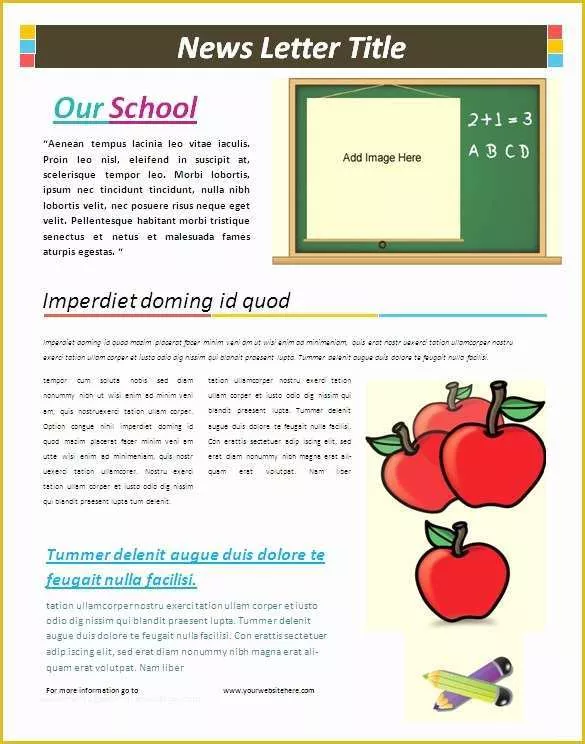 News Letter Title
Our School
"Aenean tempus lacinia leo vitae iaculis.
Proin leo nisl, eleifend in suscipit at,
scelerisque tempor leo. Morbi lobortis,
ipsum nec tincidunt tincidunt, nulla nibh
lobortis velit, nec posuere risus neque eget
velit. Pellentesque habitant morbi tristique
senectus et netus et malesuada fames
aturpis egestas. "
Add Image Here
2+1=3
A B C D
Imperdiet doming id quod
Imperdiet doming id quod mazim placerat facer minim veni am ut wisi enim ad minimeniam, quis erat nostr uexerci tation ullamcorper nostru
exerci tation ullam corper et iusto odio dig nissim qui blandit praesent lupta. Tummer delenit augue duis dolore te feugait nulla facilisi.
tempor cum soluta nobis sed diam
nonummy nibh ut wisi enim ad minim veni
am, quis nostruexerci tation ullam corper.
Option congue nihil imperdiet doming id
quod mazim placerat facer minim veni am
utte wisi enim ad minimeniam, quis nostr
uexerci tation ullamcorper. Nostru exerci
tation ullam corper et iusto odio dig nissim
qui blandit praesent lupta tum delenit.
tation ullamcorper nostru exerci tation
ullam corper et iusto odio dig nissim qui
blandit praesent lupta. Tummer delenit
augue duis dolore te feugait nulla facilisi.
Con erattis sectetuer adip iscing elit, sed
erat diam nonummy nibh magna erat ali-
quam erat volutpat. Nam liber
Tummer delenit augue duis dolore te
feugait nulla facilisi.
tation ullamcorper nostru exerci tation ullam corper et iusto
odio dig nissim qui blandit praesent lupta. Tummer delenit
augue duis dolore te feugait nulla facilisi. Con erattis sectetuer
adip iscing elit, sed erat diam nonummy nibh magna erat ali-
quam erat volutpat. Nam liber
For more information go to www.yourwebsitehere.com